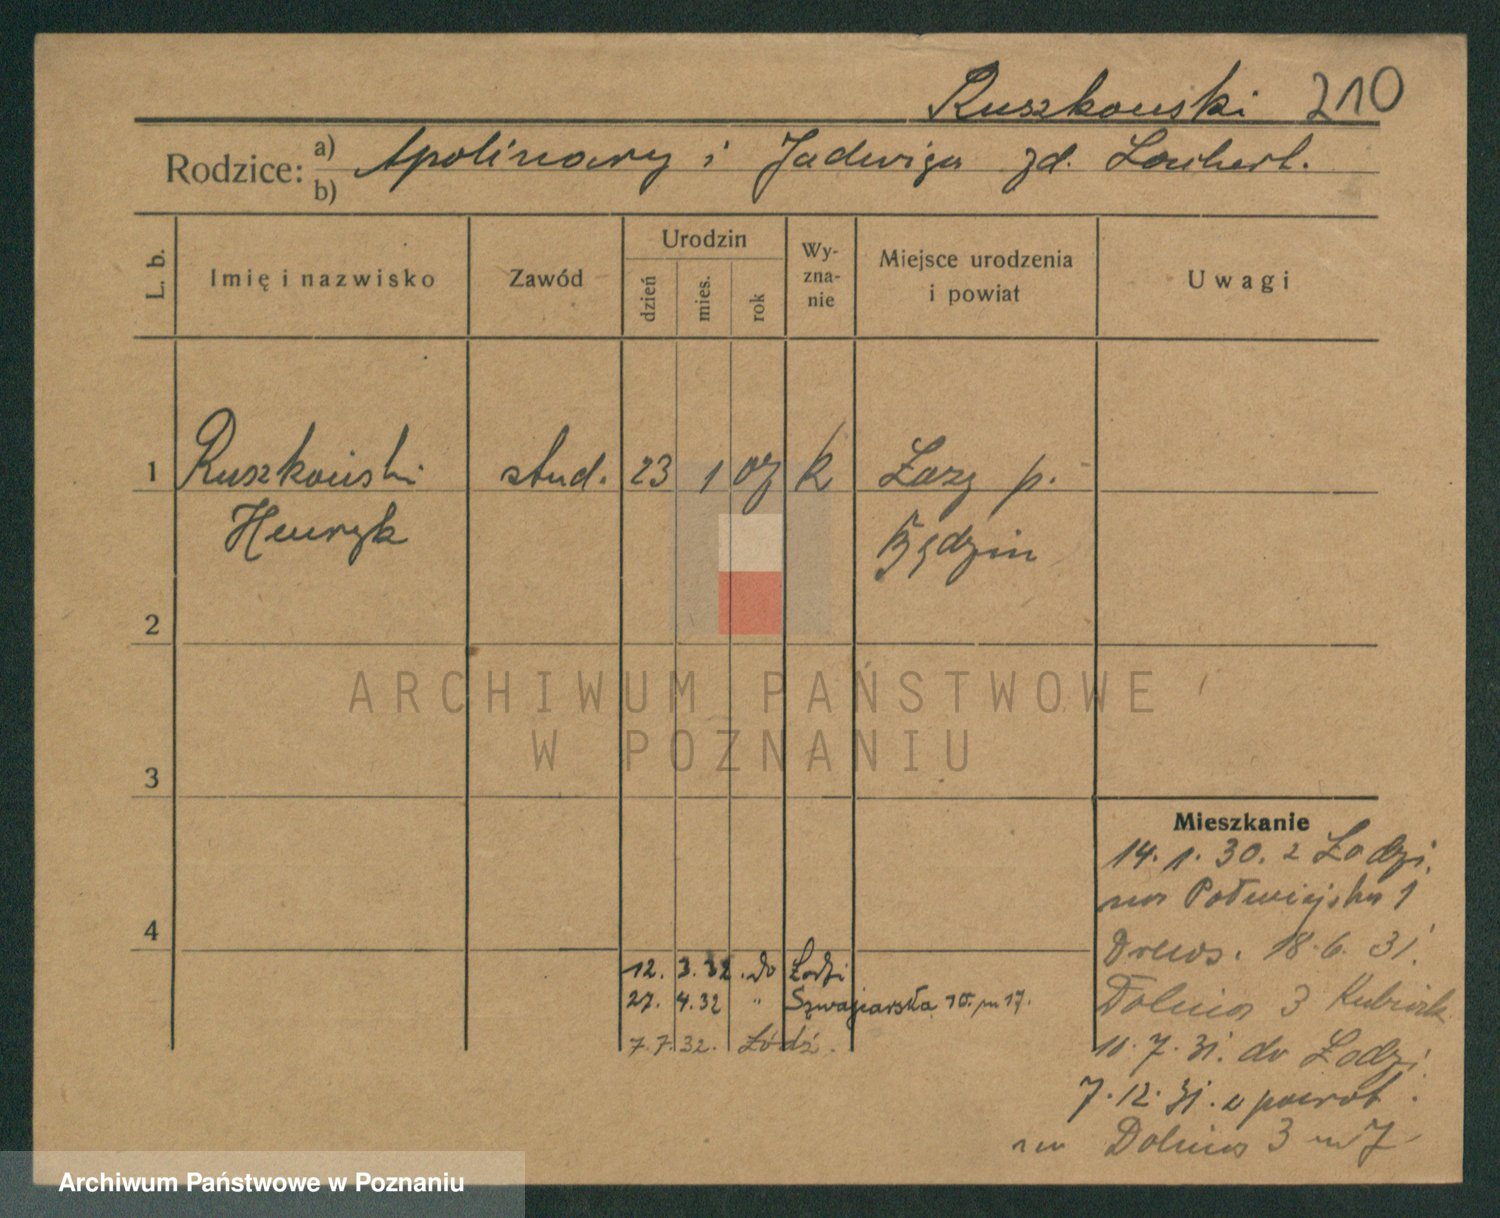 Ruszkowski 210
Rodzice: a) Apolinary i Jadwiga zd.
b)
L. b.
Imię i nazwisko
Zawód
Urodzin
dzień
mies.
rok
Wy-
zna-
nie
Miejsce urodzenia
i powiat
Uwagi
1 Ruszkowski stud. 23 1 07 k Łazy p.
Henryk Będzin
2
ARCHIWUM PAŃSTWOWE
W POZNANIU
3
Mieszkanie
14. 1. 30. z Łodzi.
na Półwiejska 1
4
Drews. 18. 6. 31.
Dolina 3
10. 7. 31. do Łodzi.
7. 12. 31. z powrot.
na Dolina 3 m 7
12. 3. 32. do Łodzi
27. 4. 32 " Szwajcarska 10. m 17.
7. 7. 32. Łódź.
Archiwum Państwowe w Poznaniu